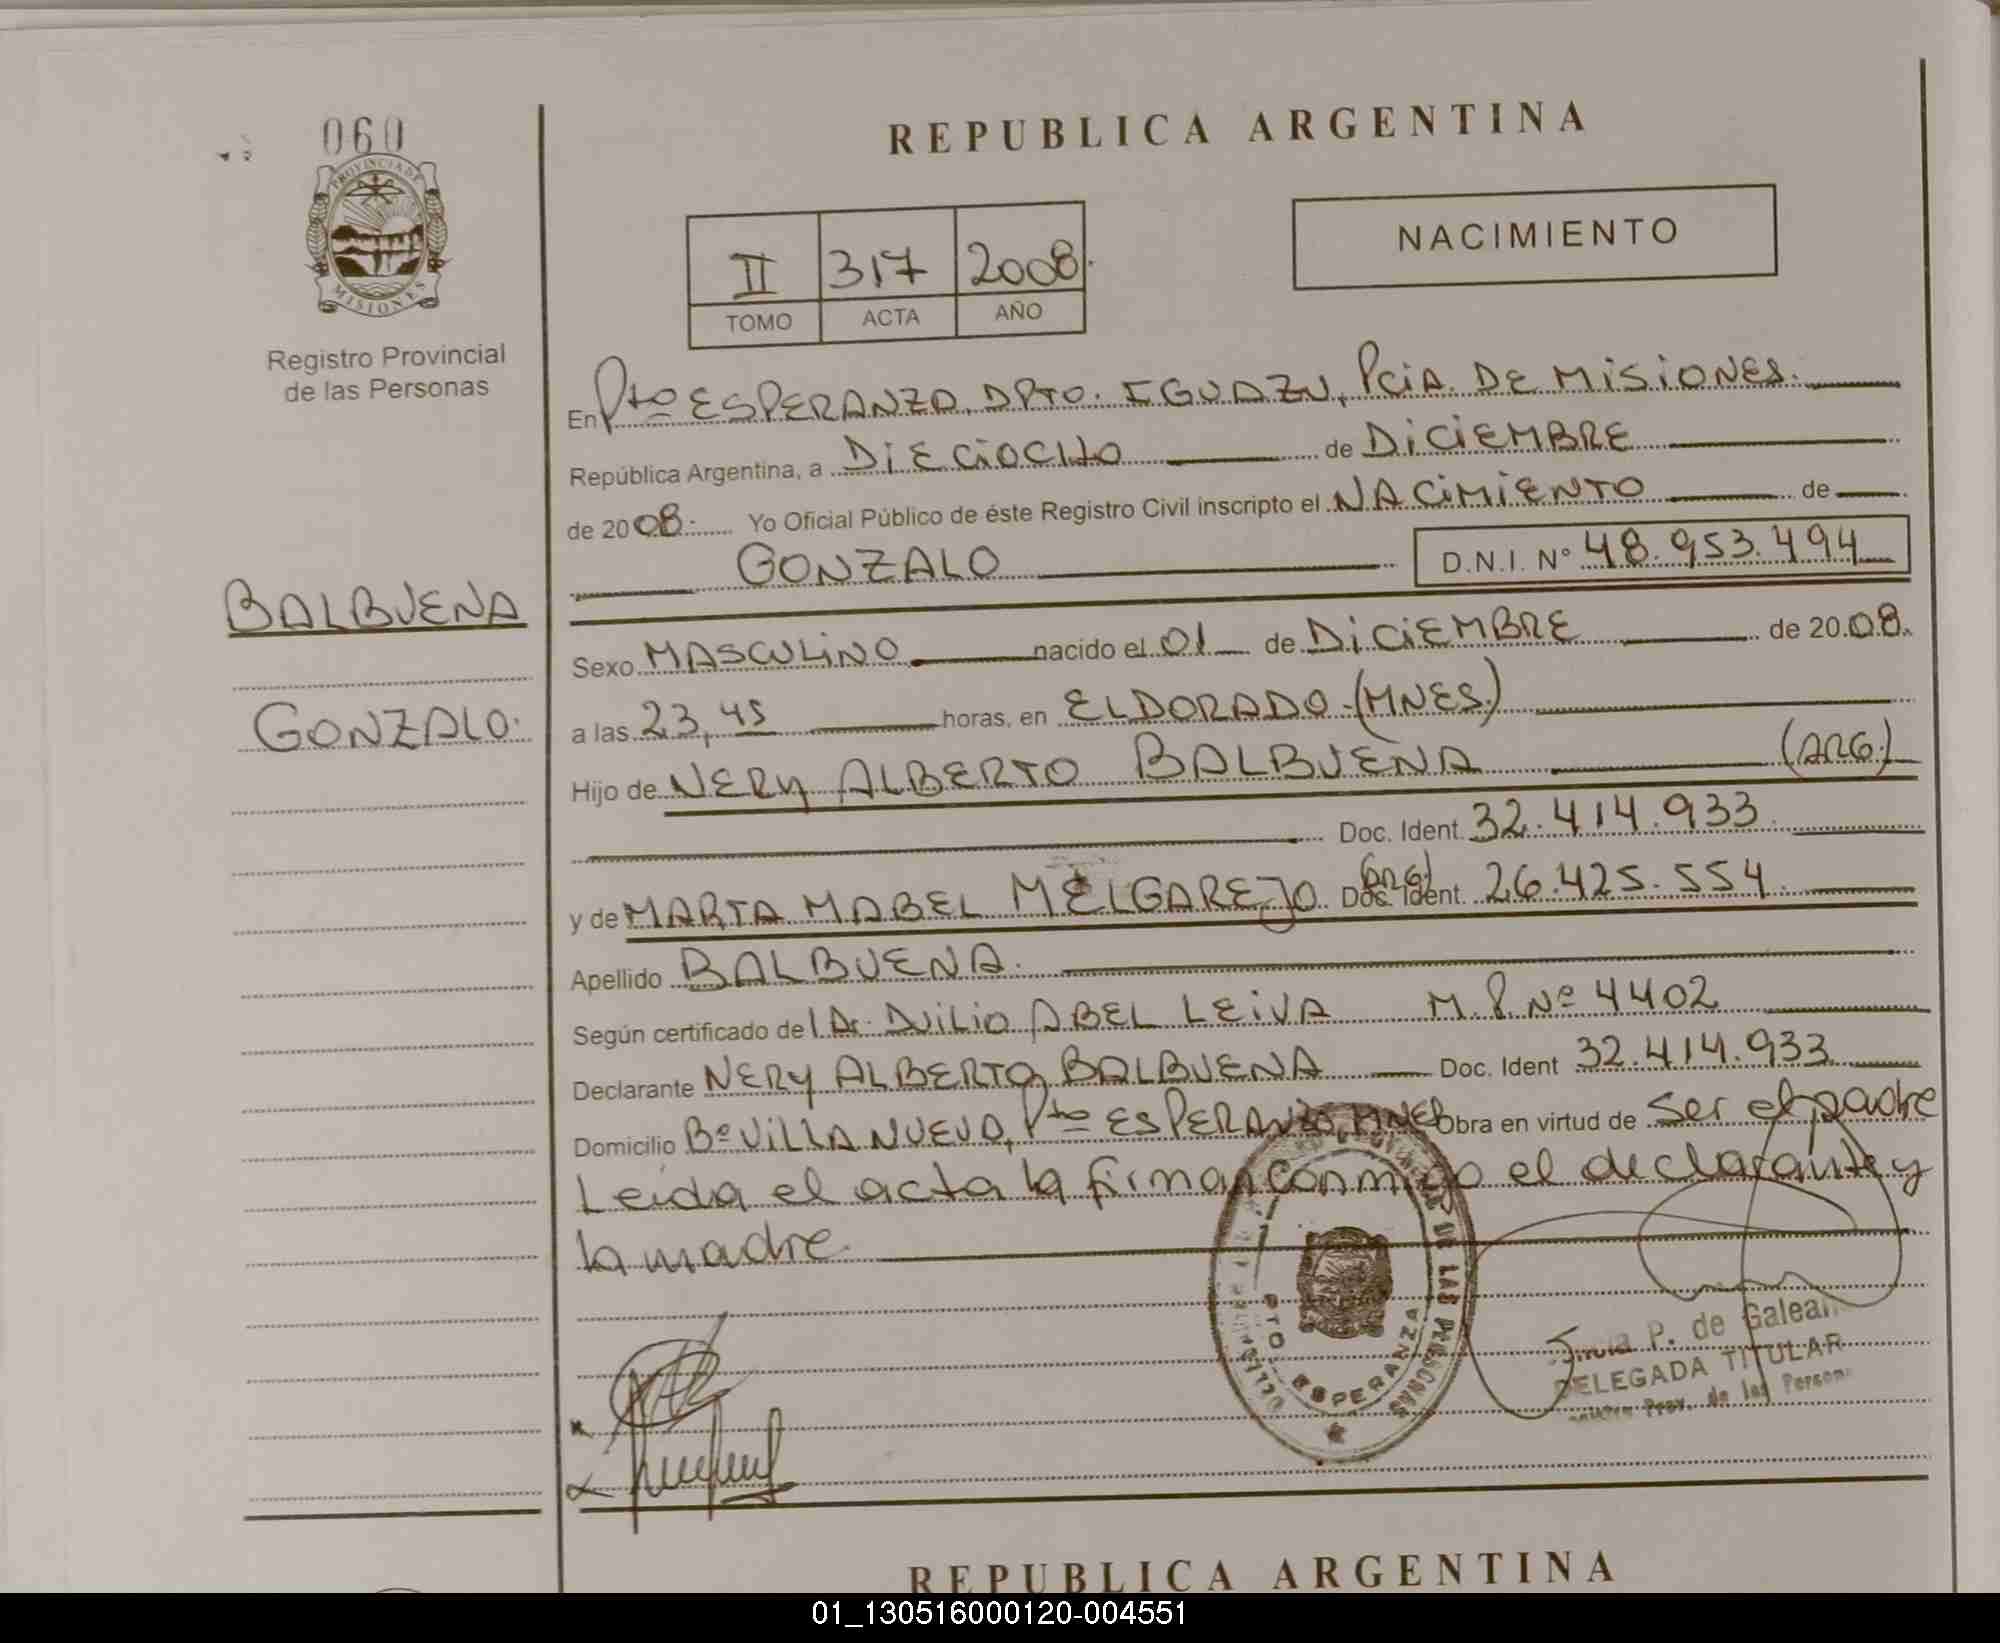 060
PROVINCIA DE
MISIONES
Registro Provincial
de las Personas
BALBUENA
GONZALO.
REPUBLICA ARGENTINA
II 317 2008.
TOMO ACTA AÑO
NACIMIENTO
En Pto ESPERANZA, DPTO. IGUAZU, Pcia. DE MISIONES.
República Argentina, a DIECIOCHO de DICIEMBRE
de 2008. Yo Oficial Público de éste Registro Civil inscripto el NACIMIENTO de
GONZALO D.N.I. Nº 48.953.494
Sexo MASCULINO nacido el 01 de DICIEMBRE de 2008.
a las 23,45 horas, en ELDORADO-(MNES.)
Hijo de NERY ALBERTO BALBUENA (ARG.)
Doc. Ident. 32.414.933
y de MARTA MABEL MELGAREJO (ARG) Doc. Ident. 26.425.554
Apellido BALBUENA.
Según certificado del Dr. DUILIO ABEL LEIVA M.P. Nº 4402
Declarante NERY ALBERTO BALBUENA Doc. Ident 32.414.933
Domicilio Bº VILLA NUEVA, Pto ESPERANZA, MNES Obra en virtud de ser el padre
Leida el acta la firman conmigo el declarante y
la madre.
DE LAS PERSONAS
PTO ESPERANZA
P. de Galeano
DELEGADA TITULAR
Prov. de las Person
REPUBLICA ARGENTINA
01_130516000120-004551